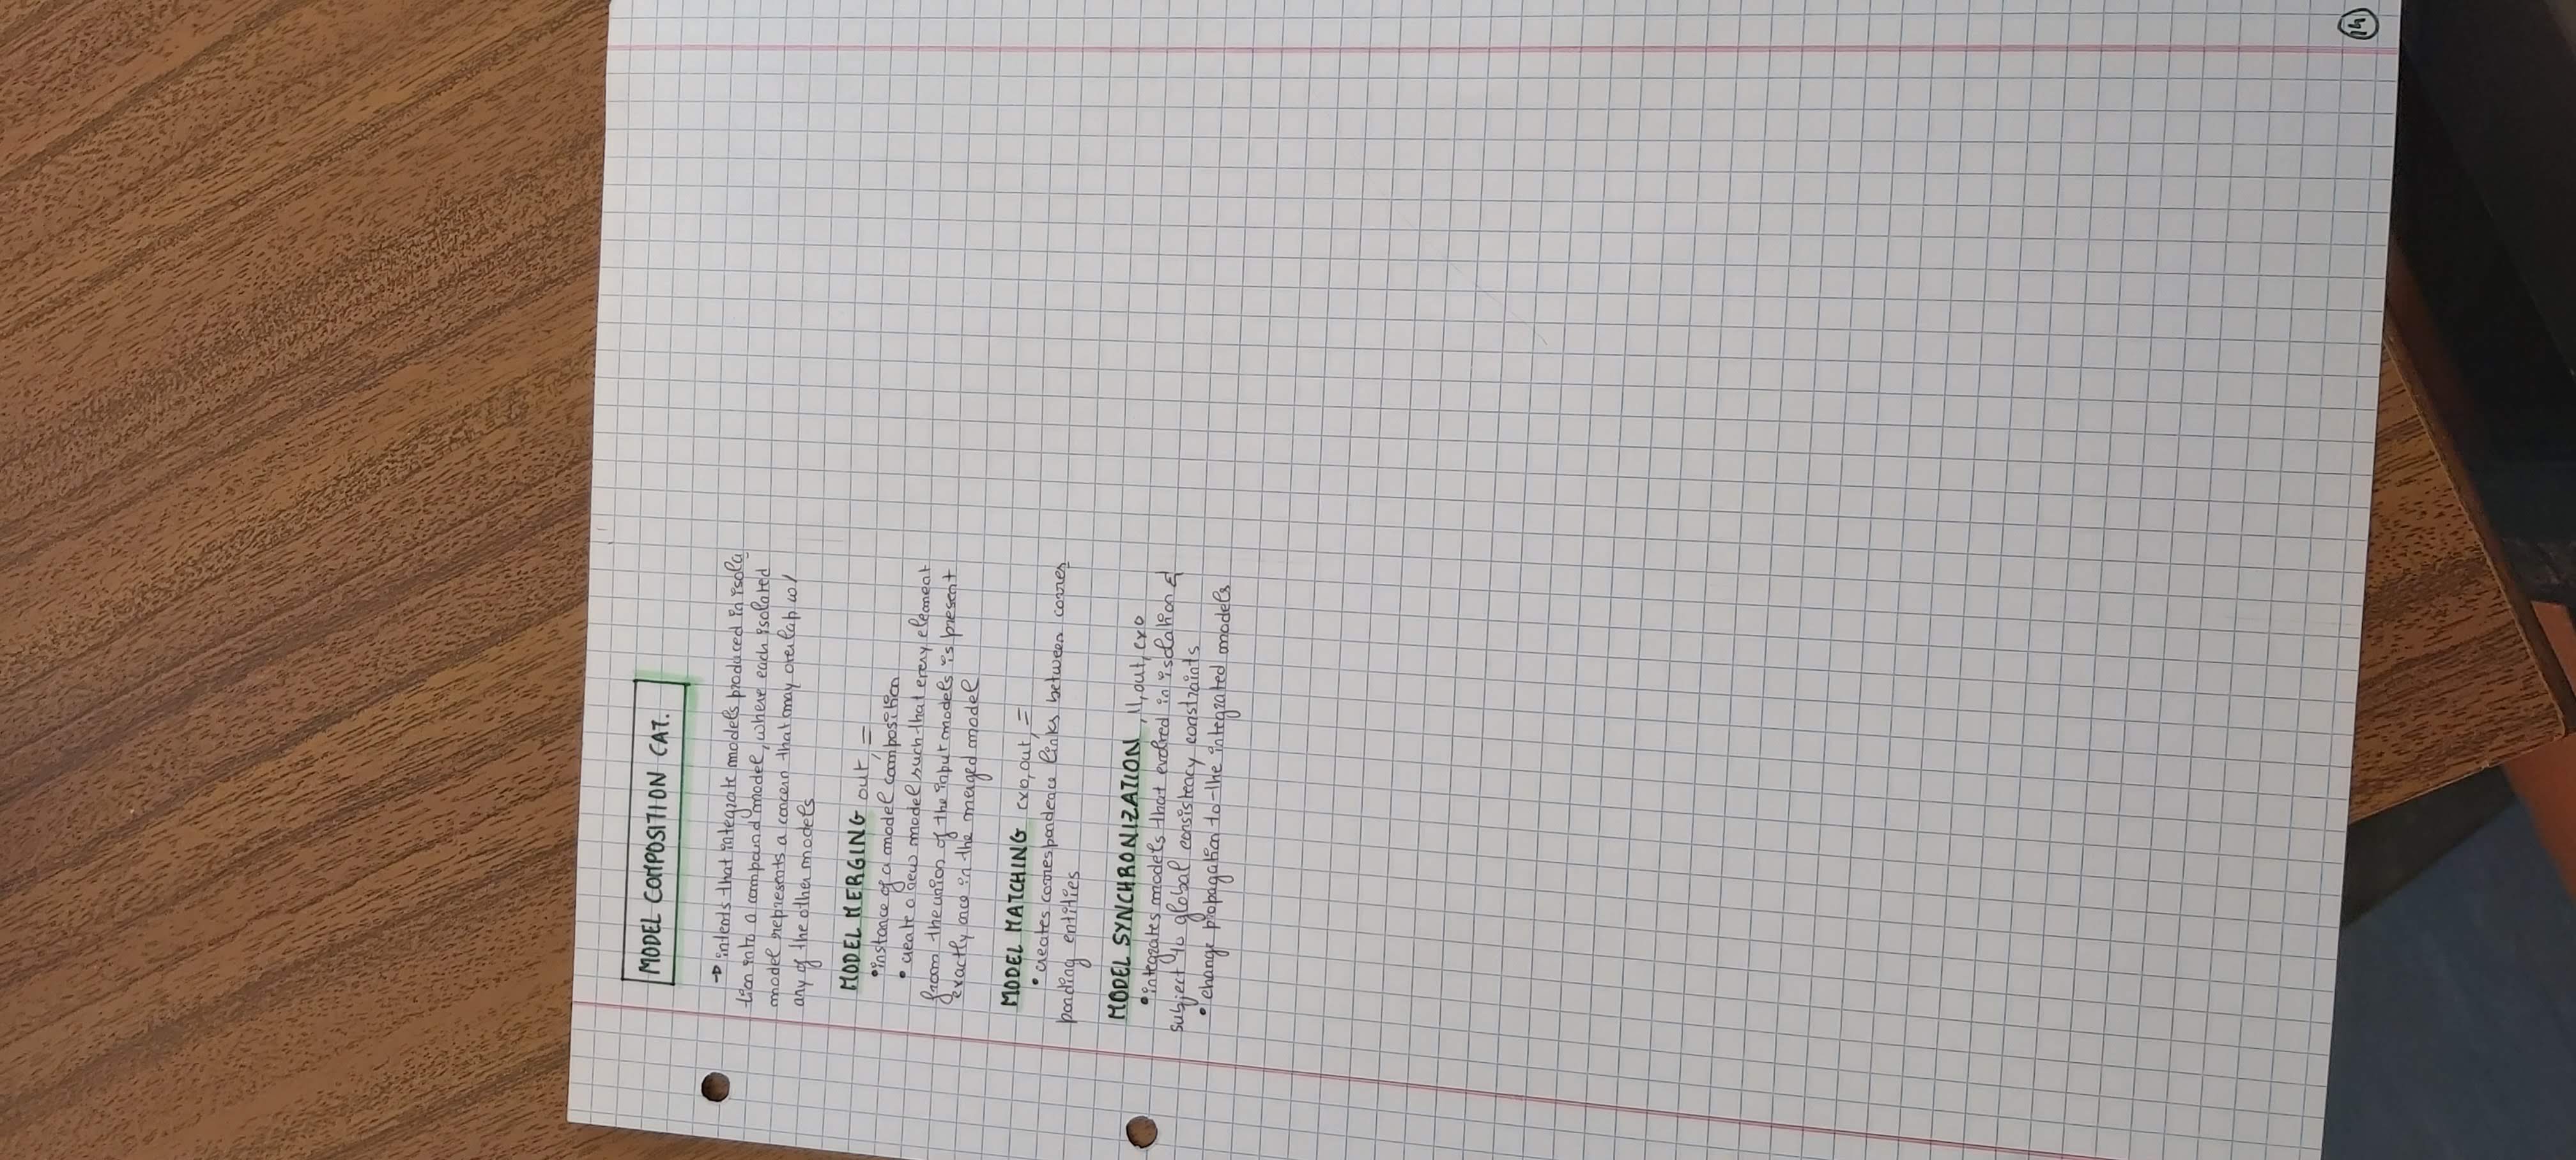 MODEL COMPOSITION CAT.
→ intents that integrate models produced in isola
tion into a compound model, where each isolated
model represents a concern that may overlap w/
any of the other models
MODEL MERGING out, =
• instance of a model composition
• create a new model such that every element
from the union of the input models is present
exactly once in the merged model
MODEL MATCHING exo, out, =
• creates correspondence links between corres
ponding entities
MODEL SYNCHRONIZATION, 11, out, exo
• integrates models that evolved in isolation &
subject to global consistency constraints
• change propagation to the integrated models